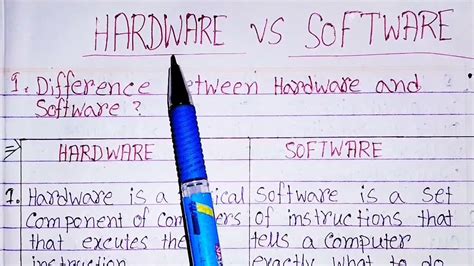 HARDWARE VS SOFTWARE
9. Difference between Hardware and
Software ?
HARDWARE
1. Hardware is a
component of
that excutes the
instruction
SOFTWARE
Software is a set
of instructions that
tells a computer
exactly what to do